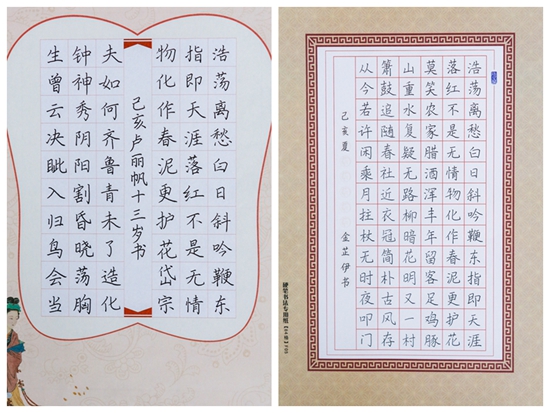 浩荡离愁白日斜吟鞭东
指即天涯落红不是无情
物化作春泥更护花岱宗
夫如何齐鲁青未了造化
钟神秀阴阳割昏晓荡胸
生曾云决眦入归鸟会当
己亥卢丽帆十三岁书
浩荡离愁白日斜吟鞭东指即天涯
落红不是无情物化作春泥更护花
莫笑农家腊酒浑丰年留客足鸡豚
山重水复疑无路柳暗花明又一村
箫鼓追随春社近衣冠简朴古风存
从今若许闲乘月拄杖无时夜叩门
己亥夏 金芷伊书
硬笔书法专用纸